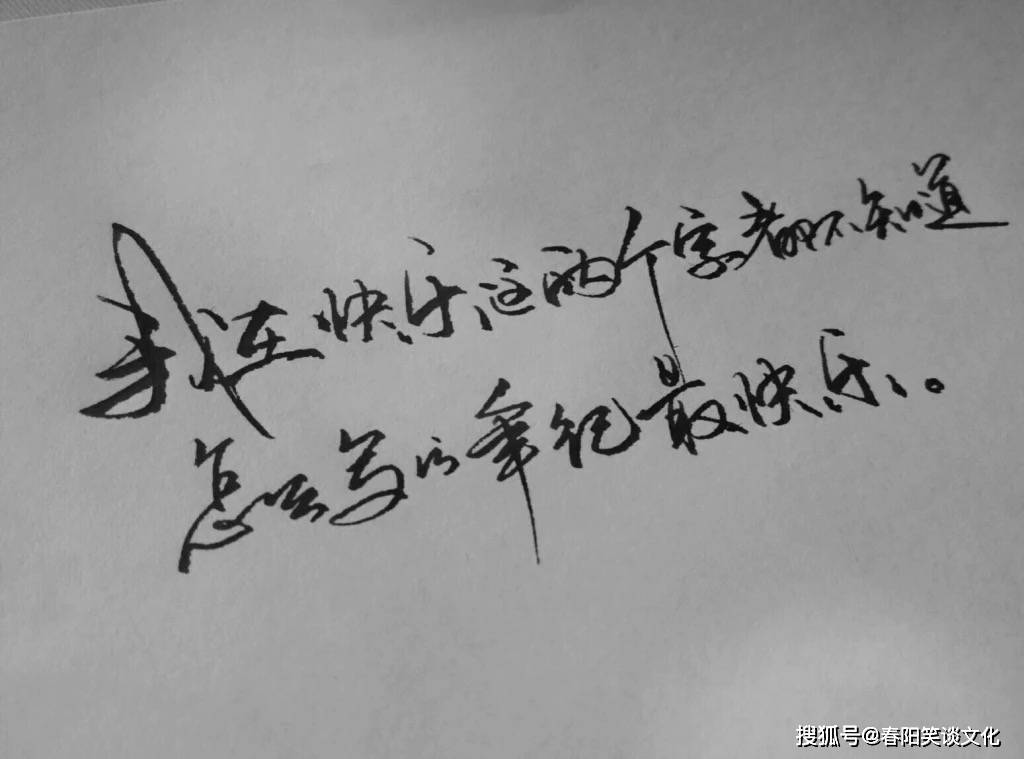 我在快乐这两个字都不知道
怎么写的年纪最快乐。
搜狐号@春阳笑谈文化